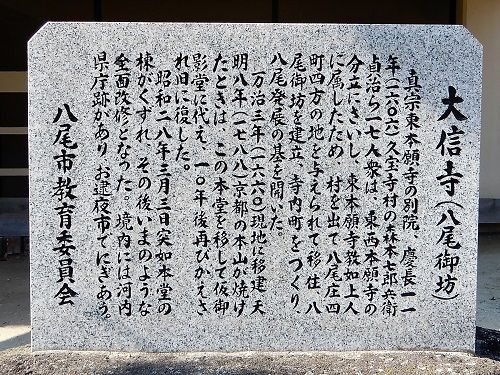 大信寺(八尾御坊)
真宗東本願寺の別院 慶長一一
年(一六〇六)久宝寺村の森本七郎兵衛
貞治ら一七人衆は、東西本願寺の
分立にさいし、東本願寺教如上人
に属したため 村を出て八尾庄四
町四方の地を与えられて移住、八
尾御坊を建立、寺内町をつくり、
八尾発展の基を開いた。
(万治三年(一六六〇)現地に移建 天
明八年(一七八八)京都の本山が焼け
たときは、この本堂を移して仮御
影堂に代え、一〇年後再びかえさ
れ旧に復した。
昭和二八年三月三日突如本堂の
棟がくずれ その後いまのような
全面改修となった。境内には河内
県庁跡があり お逮夜市でにぎあう。
八尾市教育委員会